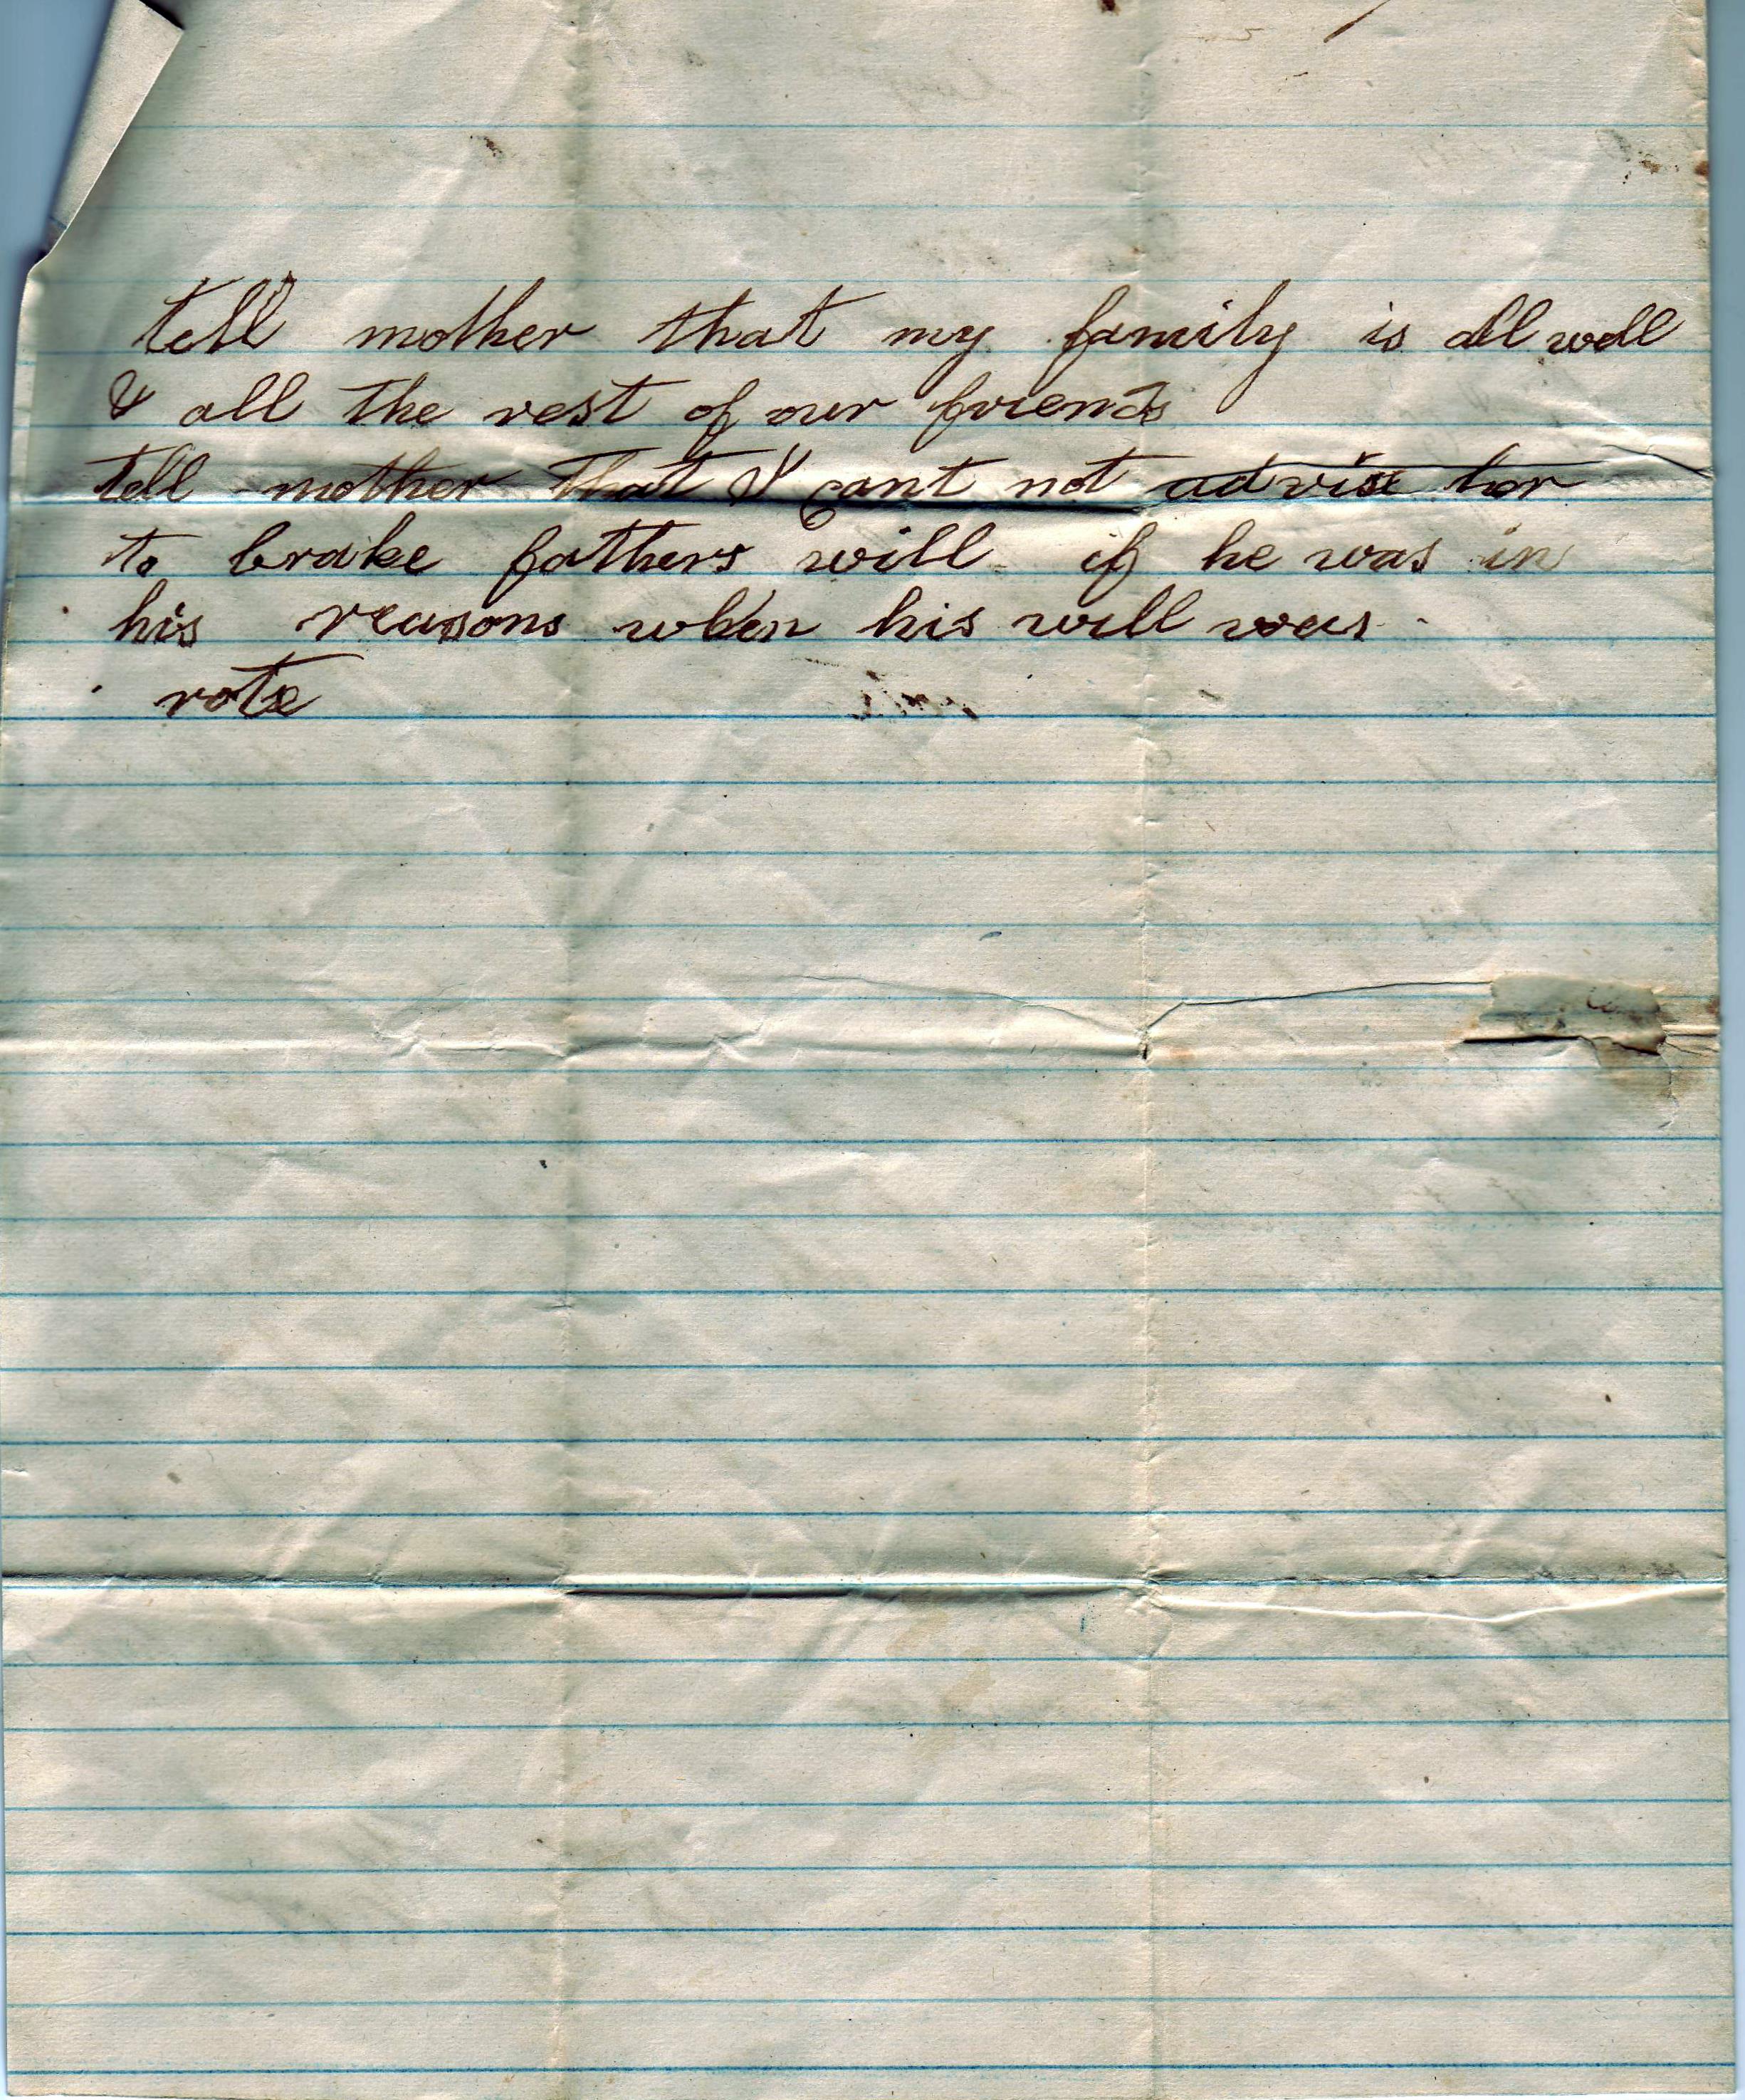 tell mother that my family is all well
& all the rest of our friends
tell mother that I cant not advise her
to brake fathers will if he was in
his reasons when his will was
rote